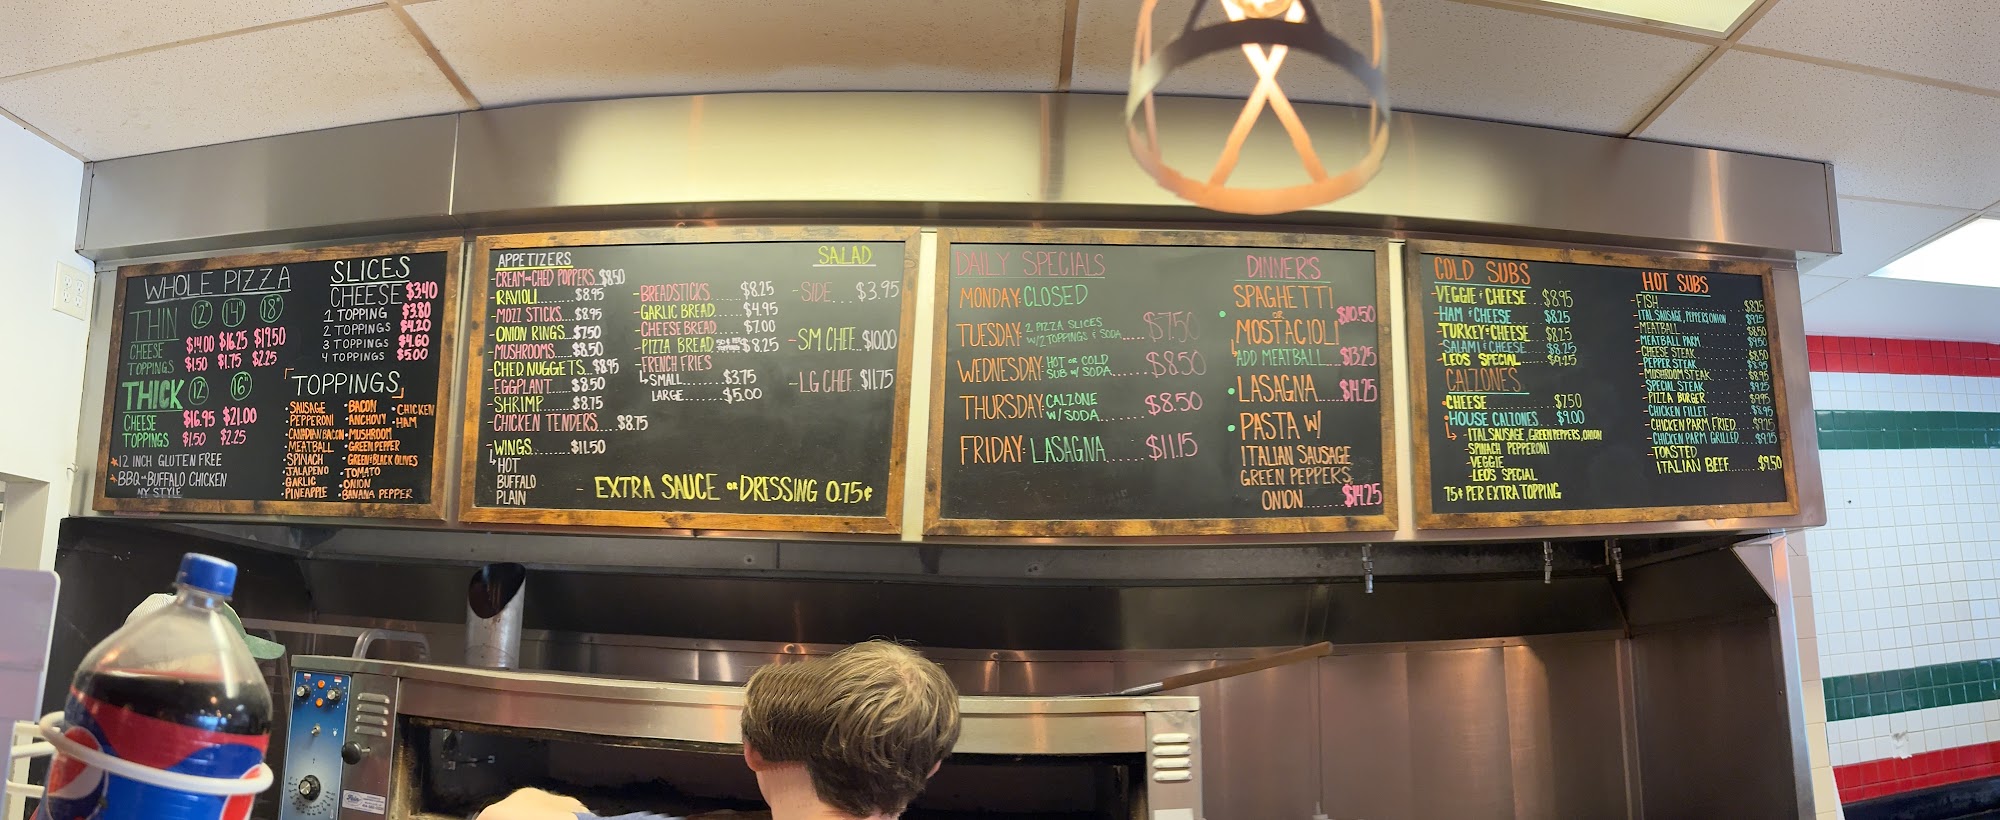 WHOLE PIZZA
THIN 12" 14" 18"
CHEESE $14.00 $16.25 $19.50
TOPPINGS $1.50 $1.75 $2.25
THICK 12" 16"
CHEESE $16.95 $21.00
TOPPINGS $1.50 $2.25
*12 INCH GLUTEN FREE
*BBQ OR BUFFALO CHICKEN
NY STYLE
SLICES
CHEESE $3.40
1 TOPPING $3.80
2 TOPPINGS $4.20
3 TOPPINGS $4.60
4 TOPPINGS $5.00
TOPPINGS
•SAUSAGE •BACON •CHICKEN
•PEPPERONI •ANCHOVY •HAM
•CANADIAN BACON •MUSHROOM
•MEATBALL •GREEN PEPPER
•SPINACH •GREEN & BLACK OLIVES
•JALAPENO •TOMATO
•GARLIC •ONION
•PINEAPPLE •BANANA PEPPER
APPETIZERS
-CREAM OR CHED POPPERS...$8.50
-RAVIOLI.......$8.95
-MOZZ STICKS....$8.95
-ONION RINGS...$7.50
-MUSHROOMS.....$8.50
-CHED NUGGETS...$8.95
-EGGPLANT....$8.50
-SHRIMP.......$8.75
-CHICKEN TENDERS....$8.75
-WINGS.........$11.50
HOT
BUFFALO
PLAIN
-BREADSTICKS.....$8.25
-GARLIC BREAD....$4.95
-CHEESE BREAD....$7.00
-PIZZA BREAD $8.25
-FRENCH FRIES
SMALL.......$3.75
LARGE.......$5.00
SALAD
-SIDE....$3.95
-SM CHEF...$10.00
-LG CHEF...$11.75
- EXTRA SAUCE OR DRESSING 0.75¢
DAILY SPECIALS
MONDAY: CLOSED
TUESDAY: 2 PIZZA SLICES W/2 TOPPINGS & SODA.....$7.50
WEDNESDAY: HOT OR COLD SUB W/ SODA.....$8.50
THURSDAY: CALZONE W/SODA........$8.50
FRIDAY: LASAGNA.......$11.15
DINNERS
• SPAGHETTI
OR $10.50
MOSTACIOLI
ADD MEATBALL....$13.25
• LASAGNA.....$14.25
• PASTA W/
ITALIAN SAUSAGE
GREEN PEPPERS
ONION.......$14.25
COLD SUBS
-VEGGIE & CHEESE...$8.95
-HAM & CHEESE......$8.25
-TURKEY & CHEESE...$8.25
-SALAMI & CHEESE...$8.25
-LEOS SPECIAL......$9.25
CALZONES
•CHEESE...............$7.50
•HOUSE CALZONES...$9.00
-ITAL SAUSAGE, GREEN PEPPERS, ONION
-SPINACH PEPPERONI
-VEGGIE
-LEOS SPECIAL
75¢ PER EXTRA TOPPING
HOT SUBS
-FISH.......$8.25
-ITAL SAUSAGE, PEPPERS, ONION $9.25
-MEATBALL.......$8.50
-MEATBALL PARM $9.50
-CHEESE STEAK....$8.50
-PEPPER STEAK....$8.95
-MUSHROOM STEAK....$8.95
-SPECIAL STEAK.....$9.25
-PIZZA BURGER......$9.95
-CHICKEN FILLET....$8.95
-CHICKEN PARM FRIED...$9.25
-CHICKEN PARM GRILLED...$9.25
-TOASTED
ITALIAN BEEF.....$9.50